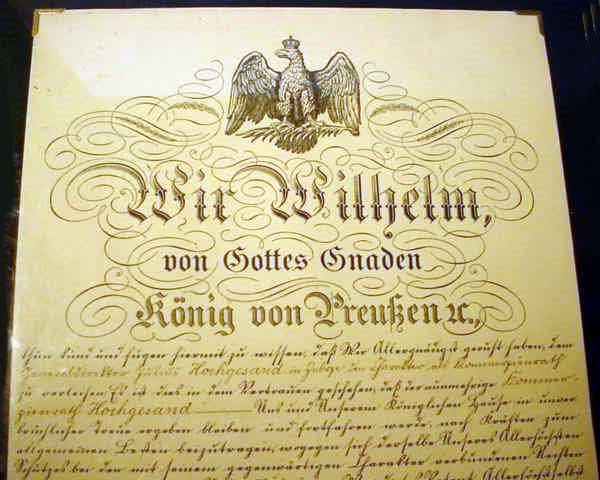 Wir Wilhelm,
von Gottes Gnaden
König von Preußen ꝛc.,
thun kund und fügen hiermit zu wissen, daß Wir Allergnädigst geruht haben, dem
Julius Hochgesand in den Charakter als Kommerzienrath
zu verleihen. Es ist dies in dem Vertrauen geschehen, daß der nunmehrige Kommer-
zienrath Hochgesand Uns und Unserem Königlichen Hause in unver-
brüchlicher Treue ergeben bleiben und fortfahren werde, nach Kräften zum
allgemeinen Besten beizutragen, wogegen sich derselbe Unseres Allerhöchsten
Schutzes bei den mit seinem gegenwärtigen Charakter verbundenen Rechten
Patent Allerhöchstselbst